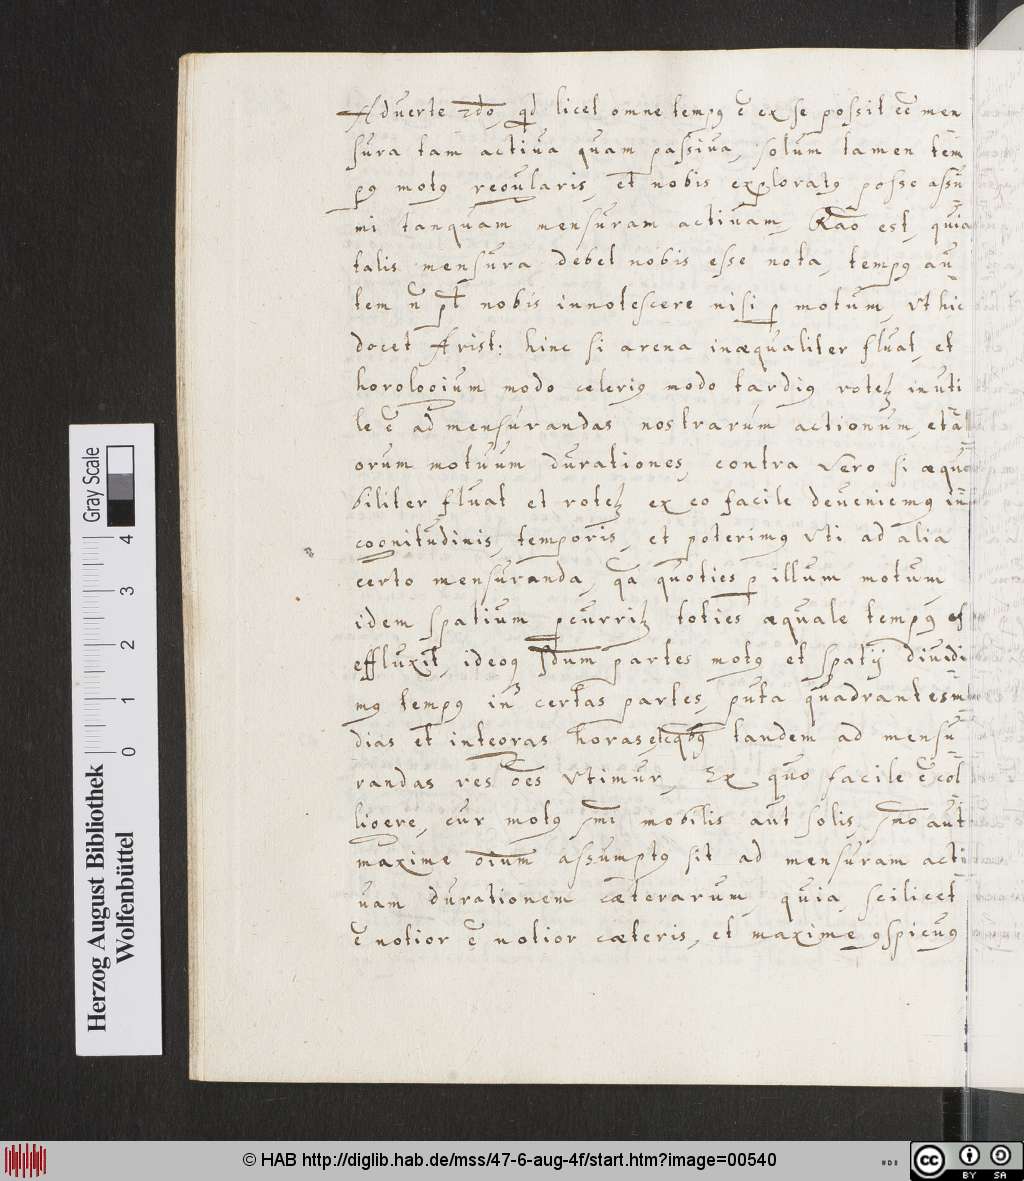 Adverte 2do, qd licet omne tempꝰ ē ex se possit eē men
sura tam activa quam passiva, solum tamen tem
pꝰ motꝰ regularis, et nobis exploratꝰ posse assū
mi tanquam mensuram activam, Rāo est, quia
talis mensura debet nobis esse nota, tempꝰ au
tem n̄ pt̄ nobis innotescere nisi ꝑ motum, vt hic
docet Arist: hinc si arena inæqualiter fluat, et
horologium modo celeriꝰ modo tardiꝰ rotetꝛ inuti
le ē ad mensurandas nostrarum actionum, et
orum motuum durationes, contra vero si æqua
biliter fluat et rotetꝛ ex eo facile deveniemꝰ in
cognitudinis, temporis, et poterimꝰ vti ad alia
certo mensuranda, qa quoties ꝑ illum motum
idem spatium ꝑcurritꝛ toties æquale tempꝰ
effluxit, ideoq partes motꝰ et spatij dividi
mꝰ tempꝰ in certas partes, puta quadrantes m
dias et integras horas, tandem ad mensu
randas res oēs vtimur, Ex quo facile ē col
ligere, cur motꝰ mi mobilis aut solis, aut
maxime oium assumptꝰ sit ad mensuram acti
uam durationem cæterarum, quia, scilicet
ē notior ē notior cæteris, et maxime ꝯspicuꝰ
Herzog August Bibliothek
Wolfenbüttel
0 1 2 3 4
Gray Scale
© HAB http://diglib.hab.de/mss/47-6-aug-4f/start.htm?image=00540
cc BY SA